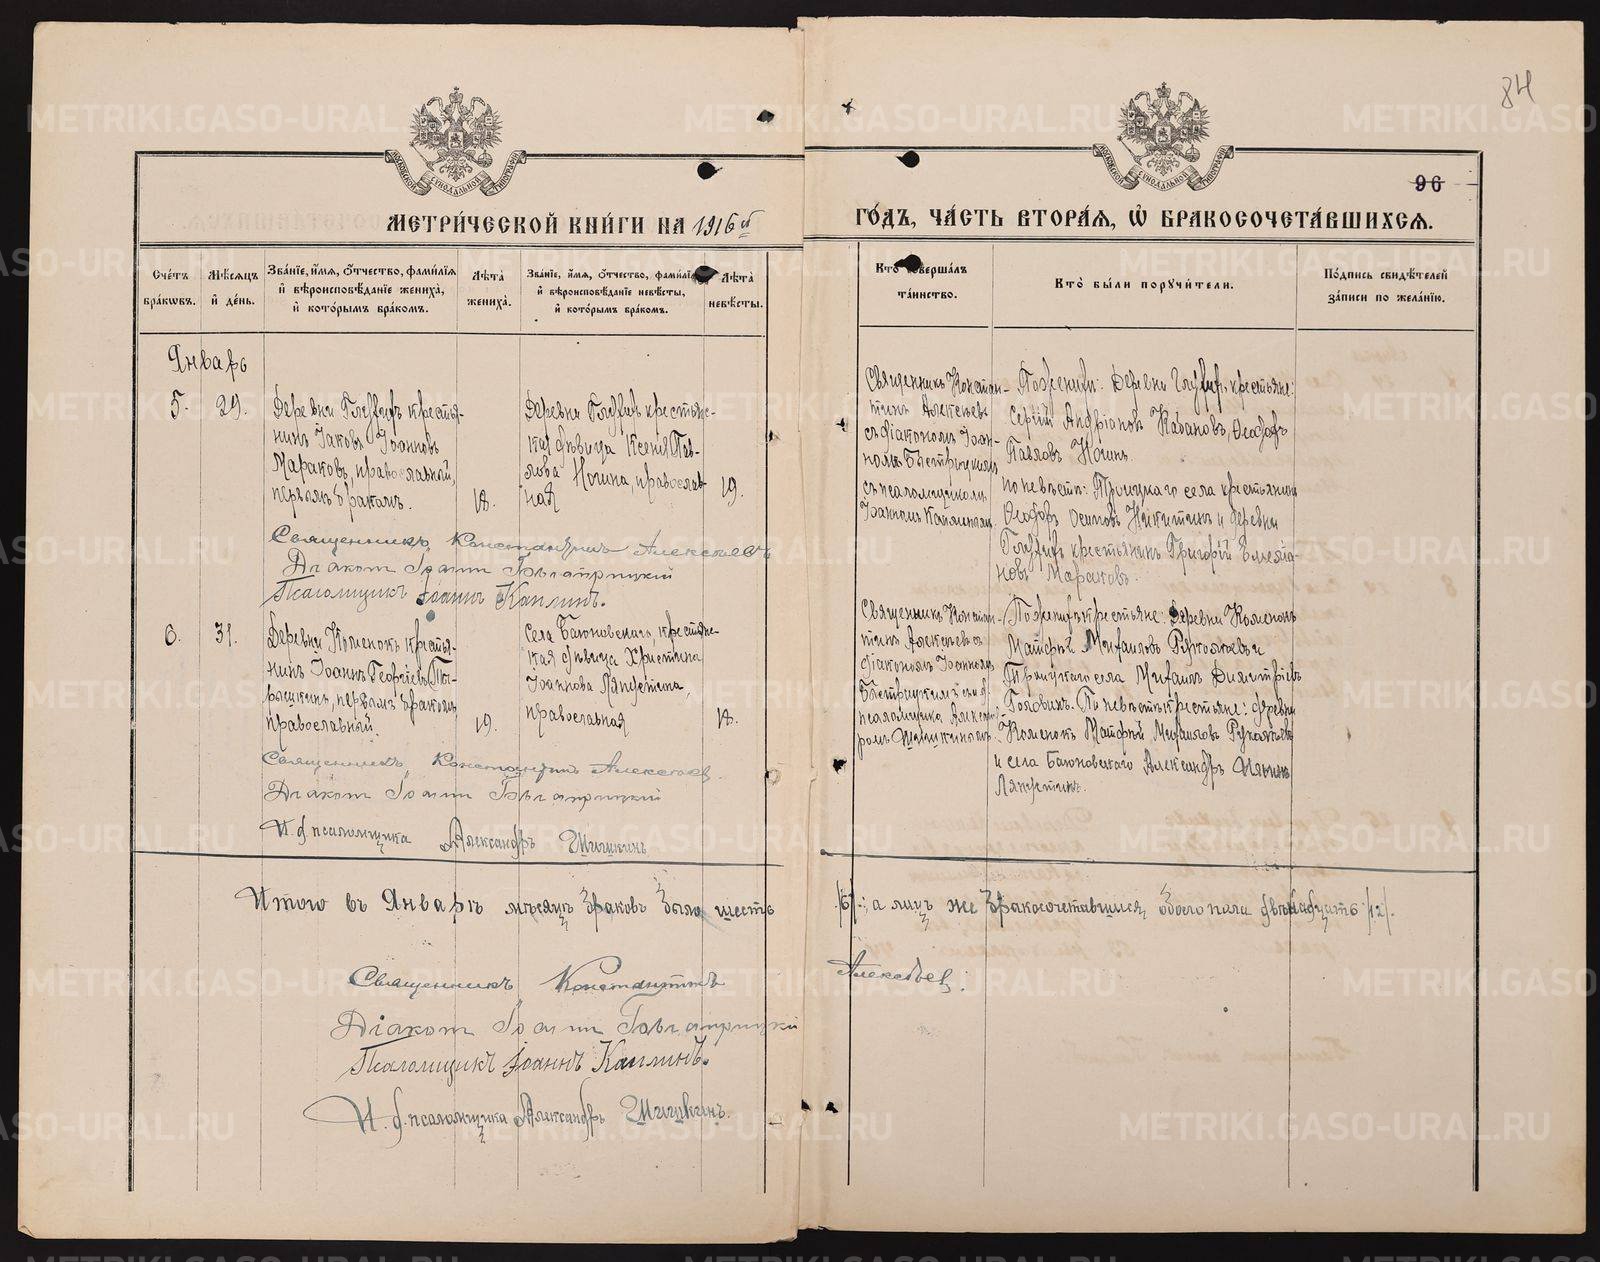 84
96
МОСКОВСКОЙ СУНОДАЛЬНОЙ ТИПОГРАФІИ
МОСКОВСКОЙ СУНОДАЛЬНОЙ ТИПОГРАФІИ
МЕТРИ́ЧЕСКОЙ КНИ́ГИ НА 1916й
ГО́ДЪ, ЧА́СТЬ ВТОРА́Я, Ѡ҆ БРАКОСОЧЕТА́ВШИХСЯ.
Сче́тъ бра́ковъ.
Мѣ́сяцъ и҆ де́нь.
Зва́нїе, и҆́мя, ѻ҆́тчество, фами́лїя и҆ вѣроисповѣ́данїе жениха̀, и҆ кото́рымъ бра́комъ.
Лѣ́та жениха̀.
Зва́нїе, и҆́мя, ѻ҆́тчество, фами́лїя и҆ вѣроисповѣ́данїе невѣ́сты, и҆ кото́рымъ бра́комъ.
Лѣ́та невѣ́сты.
Кто̀ соверша́лъ та́инство.
Кто̀ бы́ли поручи́тели.
По́дпись свидѣ́телей за́писи по жела́нїю.
Январь
5.
29.
Деревни Глухихъ крестья-
нинъ Іаковъ Іоанновъ
Мараковъ, православный,
первымъ бракомъ.
18.
Деревни Глухихъ крестьянс-
кая дѣвица Ксенія Пав-
лова Ногина, православ-
ная
19.
Священникъ Констан-
тинъ Алексѣевъ
съ діакономъ Іоан-
номъ Быстрицкимъ
съ псаломщикомъ
Іоанномъ Каплинымъ.
По женихѣ: Деревни Глухихъ крестьяне:
Сергій Андріановъ Кабановъ, Ѳеодоръ
Павловъ Ногинъ.
по невѣстѣ: Троицкаго села крестьянинъ
Ѳеодоръ Осиповъ Никитинъ и деревни
Глухихъ крестьянинъ Григорій Емелья-
новъ Мараковъ.
Священникъ Константинъ Алексѣевъ
Діаконъ Іоаннъ Быстрицкій
Псаломщикъ Іоаннъ Каплинъ.
6.
31.
Деревни Коменокъ крестья-
нинъ Іоаннъ Георгіевъ
первымъ бракомъ,
православный.
19.
Села Багоновского, крестьянс-
кая дѣвица Христина
Іоаннова Ляпустина,
православная
18.
Священникъ Констан-
тинъ Алексѣевъ съ
діакономъ Іоанномъ
Быстрицкимъ и съ и. д.
псаломщика Александ-
ромъ Шишкинымъ.
По женихѣ крестьяне: Деревни Коменокъ
Матфей Михаиловъ Рукомоевъ и
Троицкаго села Михаилъ Димитріевъ
Головинъ. По невѣстѣ крестьяне: деревни
Коменокъ Матфей Михаиловъ
и села Багоновского Александръ
Ляпустинъ.
Священникъ Константинъ Алексѣевъ.
Діаконъ Іоаннъ Быстрицкій
И. д. псаломщика Александръ Шишкинъ
Итого въ Январѣ мѣсяцѣ браковъ было шесть /6/.; а лицъ же бракосочетавшихся, обоего пола двѣнадцать /12/.
Священникъ Константинъ Алексѣевъ.
Діаконъ Іоаннъ Быстрицкій
Псаломщикъ Іоаннъ Каплинъ.
И. д. псаломщика Александръ Шишкинъ.
METRIKI.GASO-URAL.RU